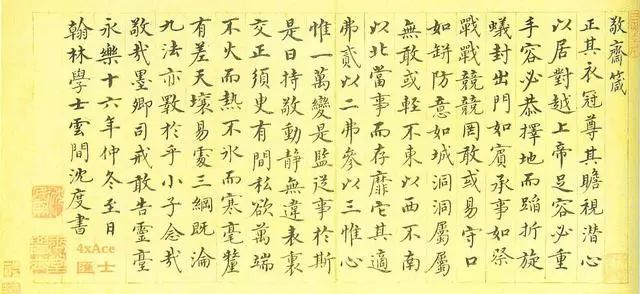 敬齋箴
正其衣冠尊其瞻視潛心
以居對越上帝足容必重
手容必恭擇地而蹈折旋
蟻封出門如賓承事如祭
戰戰兢兢罔敢或易守口
如缾防意如城洞洞屬屬
無敢或輕不東以西不南
以北當事而存靡它其適
弗貳以二弗參以三惟心
惟一萬變是監從事於斯
是曰持敬動靜無違表裏
交正須臾有間私欲萬端
不火而熱不冰而寒毫釐
有差天壤易處三綱既淪
九法亦斁於乎小子念哉
敬哉墨卿司戒敢告靈臺
永樂十六年仲冬至日
翰林學士雲間沈度書
4xAce
匯士